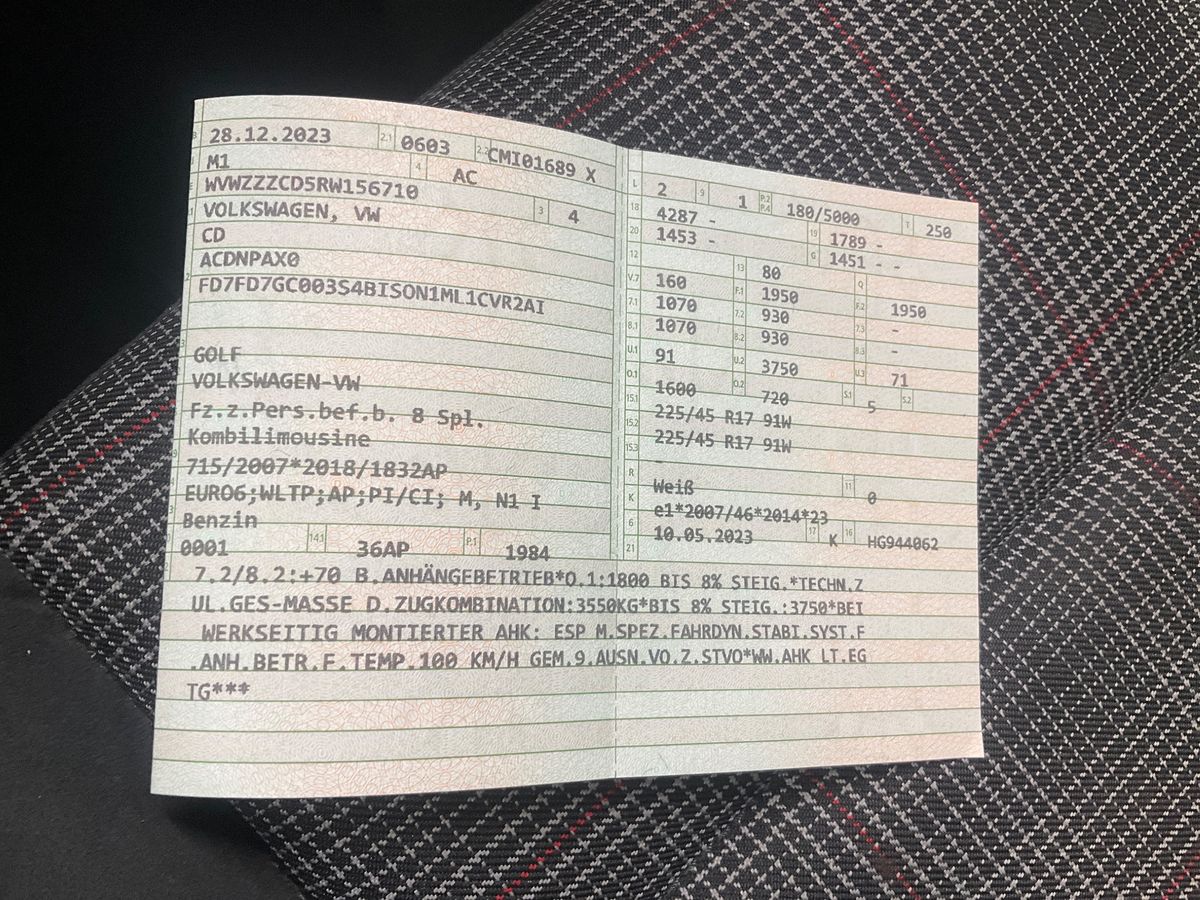 28.12.2023 2.1 0603 2.2 CMI01689 X
M1 4 AC
WVWZZZCD5RW156710
VOLKSWAGEN, VW 3 4
CD
ACDNPAX0
FD7FD7GC003S4BISON1ML1CVR2AI
GOLF
VOLKSWAGEN-VW
Fz.z.Pers.bef.b. 8 Spl.
Kombilimousine
715/2007*2018/1832AP
EURO6;WLTP;AP;PI/CI; M, N1 I
Benzin
0001 14.1 36AP P.1 1984
L 2 9 1 P.2 P.4 180/5000 T 250
18 4287 - 19 1789 -
20 1453 - G 1451 - -
12 13 80 Q
V.7 160 F.1 1950 F.2 1950
7.1 1070 7.2 930 7.3 -
8.1 1070 8.2 930 8.3 -
U.1 91 U.2 3750 U.3 71
O.1 1600 O.2 720 S.1 5 S.2
15.1 225/45 R17 91W
15.2 225/45 R17 91W
15.3 -
R Weiß 11 0
K e1*2007/46*2014*23
6 10.05.2023 17 K 16 HG944062
21
7.2/8.2:+70 B.ANHÄNGEBETRIEB*O.1:1800 BIS 8% STEIG.*TECHN.Z
UL.GES-MASSE D.ZUGKOMBINATION:3550KG*BIS 8% STEIG.:3750*BEI
WERKSEITIG MONTIERTER AHK: ESP M.SPEZ.FAHRDYN.STABI.SYST.F
.ANH.BETR.F.TEMP.100 KM/H GEM.9.AUSN.VO.Z.STVO*WW.AHK LT.EG
TG***